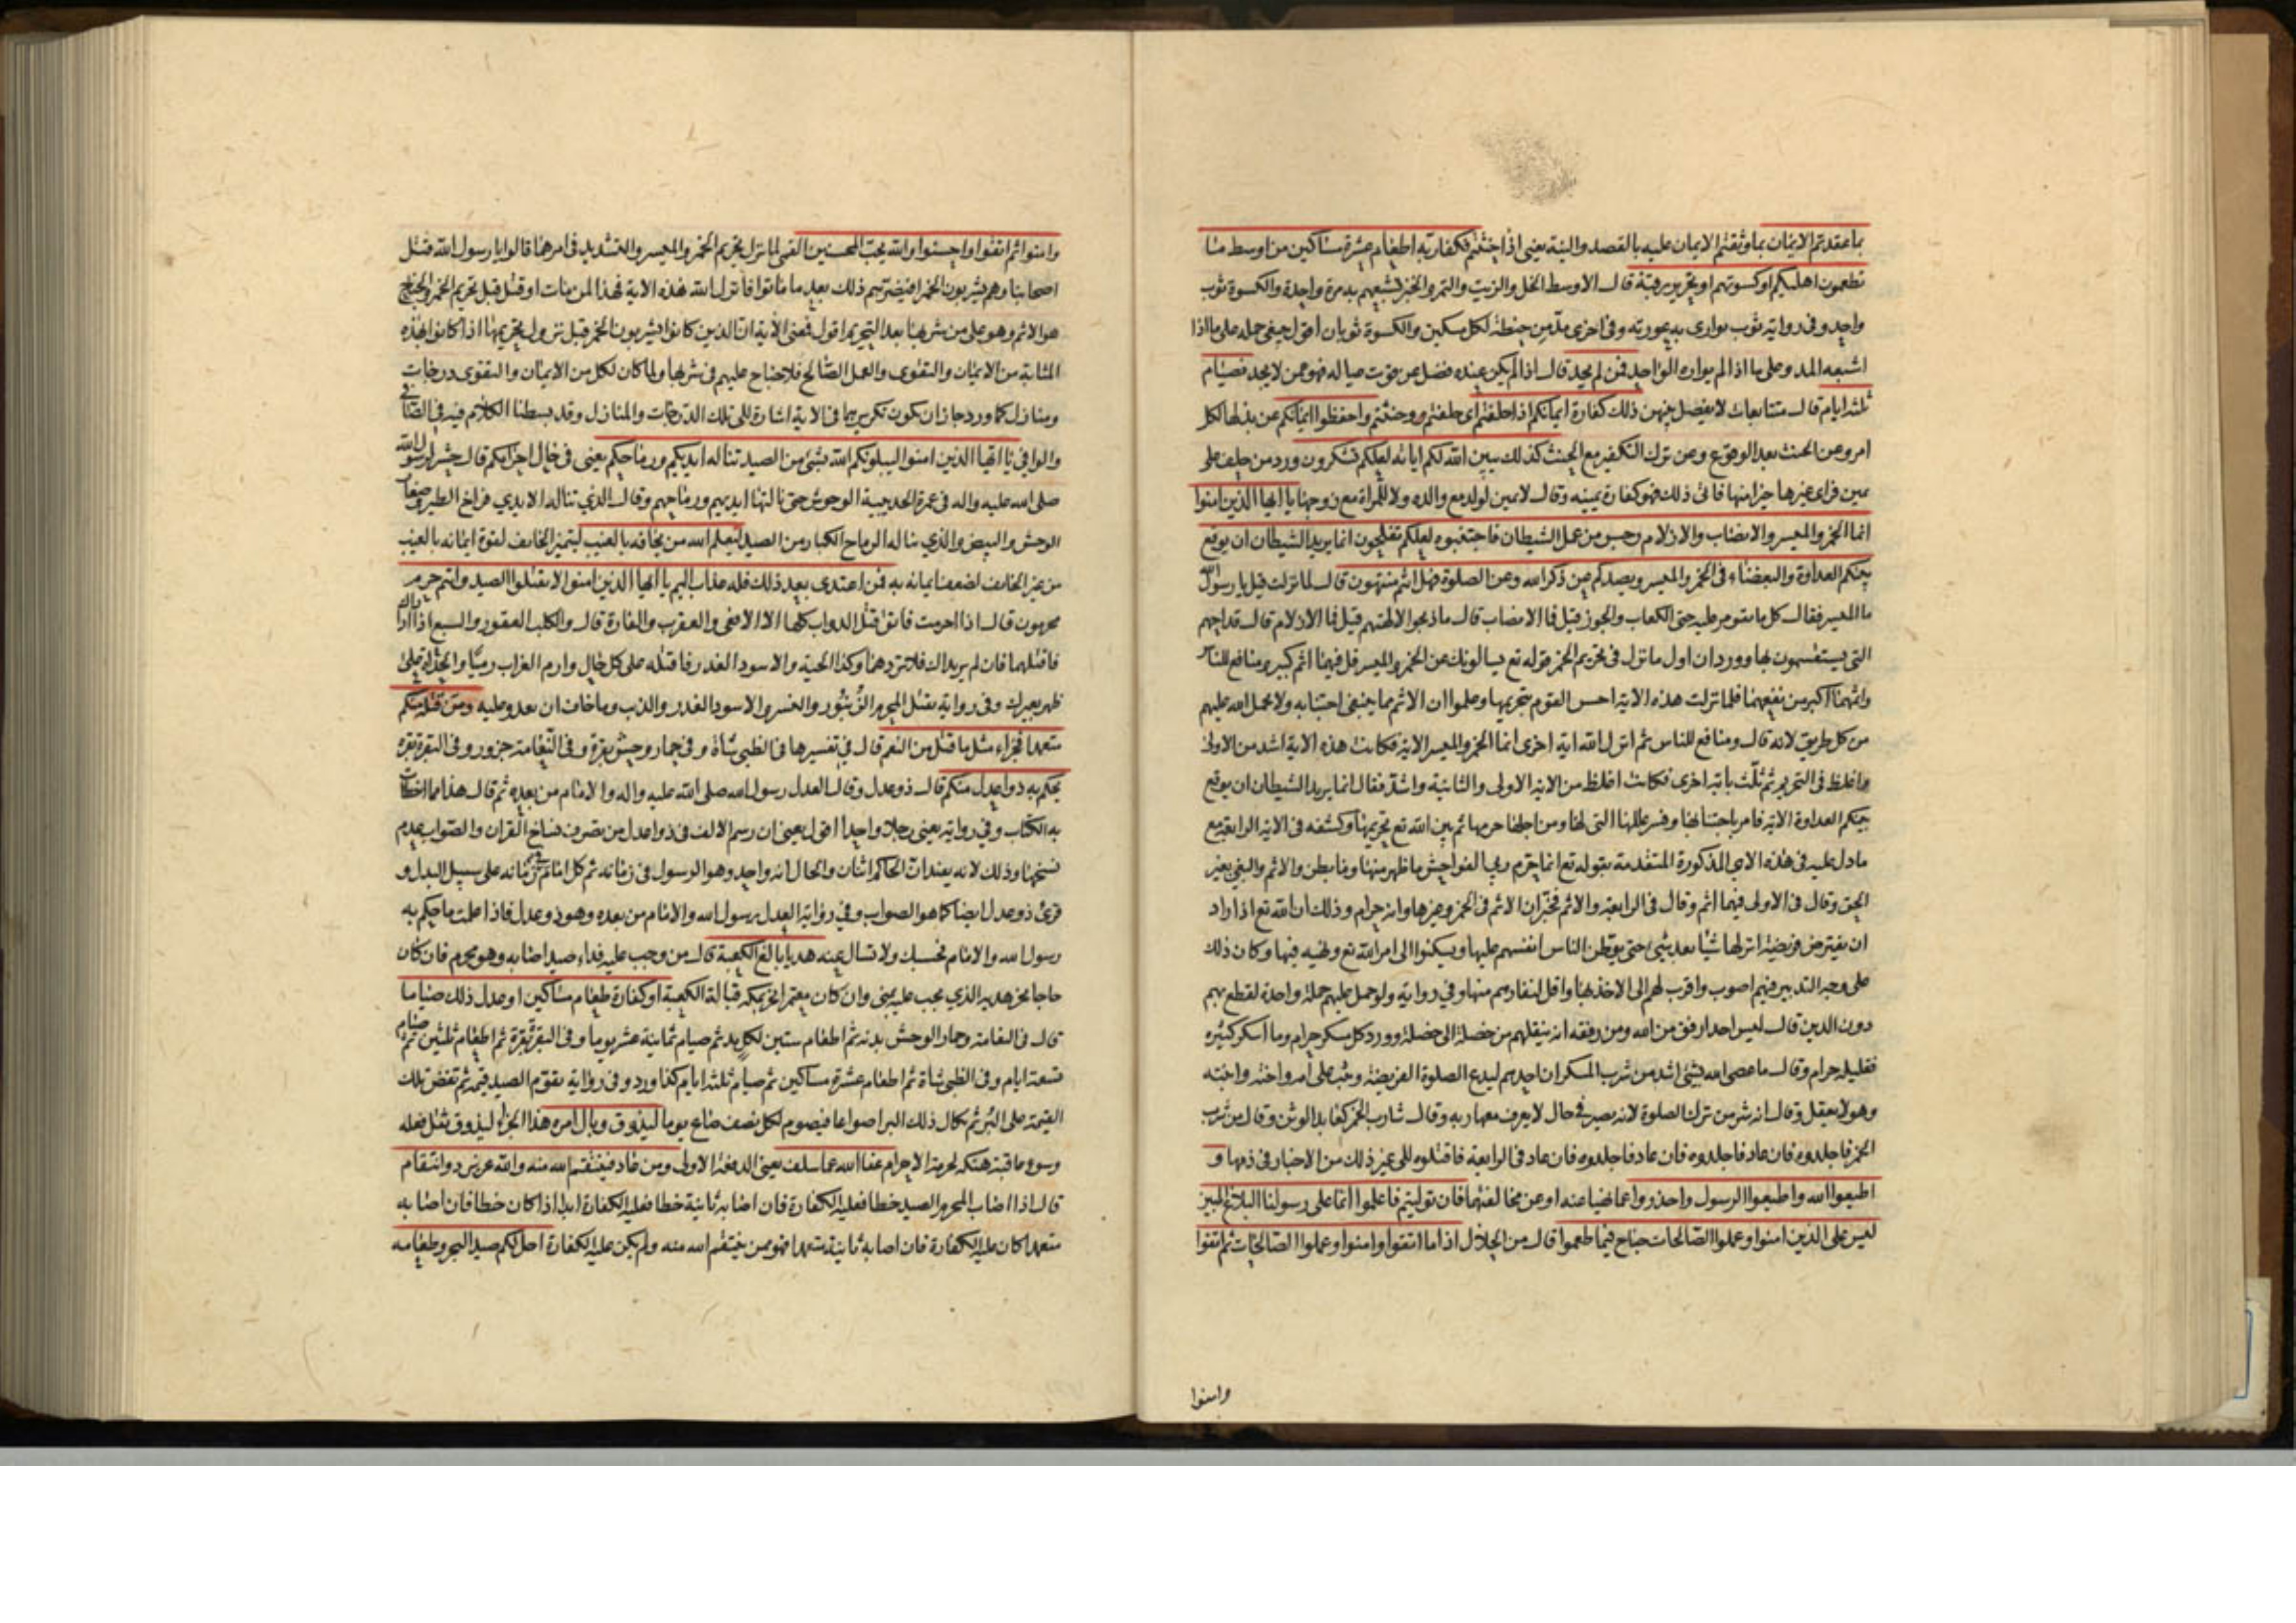 بما عقدتم الايمان بما وثقتم الايمان عليه بالقصد والنية يعني اذا حنثتم فكفارته اطعام عشرة مساكين من اوسط ما
تطعمون اهليكم او كسوتهم او تحرير رقبة قال الاوسط الخل والزيت والتمر والخبز تشبعهم به مرة واحدة والكسوة ثوب
واحد وفي رواية ثوب يواري به عورته وفي اخرى مد من حنطة لكل مسكين والكسوة ثوبان اقول ينبغي حمله على ما اذا
اشبعه المد وعلى ما اذا لم يواره الواحد فمن لم يجد قال اذا لم يكن عنده فضل عن قوت عياله فهو ممن لا يجد فصيام
ثلثة ايام قال متتابعات لا يفصل بينهن ذلك كفارة ايمانكم اذا حلفتم اي حلفتم وحنثتم واحفظوا ايمانكم عن بذلها لكل
امر وعن الحنث بعد الوقوع وعن ترك التكفير مع الحنث كذلك يبين الله لكم اياته لعلكم تشكرون ورد من حلف على
يمين فراى غيرها خيرا منها فاتى ذلك فهو كفارة يمينه وقال لا يمين لولد مع والده ولا للمراة مع زوجها يا ايها الذين امنوا
انما الخمر والميسر والانصاب والازلام رجس من عمل الشيطان فاجتنبوه لعلكم تفلحون انما يريد الشيطان ان يوقع
بينكم العداوة والبغضاء في الخمر والميسر ويصدكم عن ذكر الله وعن الصلوة فهل انتم منتهون قال لما نزلت قيل يا رسول الله
ما الميسر فقال كل ما تقومر عليه حتى الكعاب والجوز قيل فما الانصاب قال ما ذبحوا لالهتهم قيل فما الازلام قال قداحهم
التي يستقسمون بها وورد ان اول ما نزل في تحريم الخمر قوله تع يسالونك عن الخمر والميسر قل فيهما اثم كبير ومنافع للناس
واثمهما اكبر من نفعهما فلما نزلت هذه الاية احس القوم بتحريمها وعلموا ان الاثم مما ينبغي اجتنابه ولا يحمل الله عليهم
من كل طريق لانه قال ومنافع للناس ثم انزل الله اية اخرى انما الخمر والميسر الاية فكانت هذه الاية اشد من الاولى
واغلظ في التحريم ثم ثلث باية اخرى فكانت اغلظ من الاية الاولى والثانية واشد فقال انما يريد الشيطان ان يوقع
بينكم العداوة الاية فامر باجتنابها وفسر عللها التي لها ومن اجلها حرمها ثم بين الله تع تحريمها وكشفه في الاية الرابعة مع
ما دل عليه في هذه الاي المذكورة المتقدمة بقوله تع انما حرم ربي الفواحش ما ظهر منها وما بطن والاثم والبغي بغير
الحق وقال في الاولى فيهما اثم وقال في الرابعة والاثم فخبر ان الاثم في الخمر وغيرها وانه حرام وذلك ان الله تع اذا اراد
ان يفترض فريضة انزلها شيئا بعد شيء حتى يوطن الناس انفسهم عليها ويسكنوا الى امر الله تع ونهيه فيها وكان ذلك
على وجه التدبير فيهم اصوب واقرب لهم الى الاخذ بها واقل لنفارهم منها وفي رواية ولو حمل عليهم جملة واحدة لقطع بهم
دون الدين قال ليس احد ارفق من الله ومن رفقه انه ينقلهم من خصلة الى خصلة وورد كل مسكر حرام وما اسكر كثيره
فقليله حرام وقال ما عصي الله بشيء اشد من شرب المسكر ان احدهم ليدع الصلوة الفريضة ويثب على امه واخته وابنته
وهو لا يعقل وقال انه شر من ترك الصلوة لانه يصير في حال لا يعرف معها ربه وقال شارب الخمر كعابد الوثن وقال من شرب
الخمر فاجلدوه فان عاد فاجلدوه فان عاد فاجلدوه فان عاد في الرابعة فاقتلوه الى غير ذلك من الاخبار في ذمها و
اطيعوا الله واطيعوا الرسول واحذروا عما نهيا عنه او عن مخالفتهما فان توليتم فاعلموا انما على رسولنا البلاغ المبين
ليس على الذين امنوا وعملوا الصالحات جناح فيما طعموا قال من الحلال اذا ما اتقوا وامنوا وعملوا الصالحات ثم اتقوا
وامنوا
وامنوا ثم اتقوا واحسنوا والله يحب المحسنين القمي لما نزل تحريم الخمر والميسر والتشديد في امرهما قالوا يا رسول الله قتل
اصحابنا وهم يشربون الخمر افيضرهم ذلك بعد ما ماتوا فانزل الله هذه الاية فهذا لمن مات او قتل قبل تحريم الخمر والجناح
هو الاثم وهو على من شربها بعد التحريم اقول فمعنى الاية ان الذين كانوا يشربون الخمر قبل نزول تحريمها اذا كانوا بهذه
المثابة من الايمان والتقوى والعمل الصالح فلا جناح عليهم في شربها ولما كان لكل من الايمان والتقوى درجات
ومنازل كما ورد جاز ان يكون تكريرهما في الاية اشارة الى تلك الدرجات والمنازل وقد بسطنا الكلام فيه في الصافي
والوافي يا ايها الذين امنوا ليبلونكم الله بشيء من الصيد تناله ايديكم ورماحكم يعني في حال احرامكم قال حشر لرسول الله
صلى الله عليه واله في عمرة الحديبية الوحوش حتى نالتها ايديهم ورماحهم وقال الذي تناله الايدي فراخ الطير وصغار
الوحش والبيض والذي تناله الرماح الكبار من الصيد ليعلم الله من يخافه بالغيب ليتميز الخائف لقوة ايمانه بالغيب
من غير الخائف لضعف ايمانه به فمن اعتدى بعد ذلك فله عذاب اليم يا ايها الذين امنوا لا تقتلوا الصيد وانتم حرم
محرمون قال اذا احرمت فاتق قتل الدواب كلها الا الافعى والعقرب والفارة قال والكلب العقور والسبع اذا ارادك
فاقتلهما فان لم يريداك فلا تردهما وكذا الحية والاسود الغدر فاقتله على كل حال وارم الغراب رميا والحداة على
ظهر بعيرك وفي رواية يقتل المحرم الزنبور والنسر والاسود الغدر والذئب وما خاف ان يعدو عليه ومن قتله منكم
متعمدا فجزاء مثل ما قتل من النعم قال في تفسيرها في الظبي شاة وفي حمار وحش بقرة وفي النعامة جزور وفي البقرة بقرة
يحكم به ذوا عدل منكم قال ذو عدل وقال العدل رسول الله صلى الله عليه واله والامام من بعده ثم قال هذا مما اخطات
به الكتاب وفي رواية يعني رجلا واحدا اقول يعني ان رسم الالف في ذوا عدل من تصرف نساخ القران والصواب عدم
نسخها وذلك لانه يفيد ان الحاكم اثنان والحال انه واحد وهو الرسول في زمانه ثم كل امام في زمانه على سبيل البدل و
قرئ ذو عدل ايضا كما هو الصواب وفي رواية العدل رسول الله والامام من بعده وهو ذو عدل فاذا علمت ما حكم به
رسول الله والامام فحسبك ولا تسال عنه هديا بالغ الكعبة قال من وجب عليه فداء صيد اصابه وهو محرم فان كان
حاجا نحر هديه الذي يجب عليه بمنى وان كان معتمرا نحر بمكة قبالة الكعبة او كفارة طعام مساكين او عدل ذلك صياما
قال في النعامة وحمار الوحش بدنة ثم اطعام ستين لكل يد ثم صيام ثمانية عشر يوما وفي البقرة بقرة ثم اطعام ثلثين ثم صيام
تسعة ايام وفي الظبي شاة ثم اطعام عشرة مساكين ثم صيام ثلثة ايام كذا ورد وفي رواية يقوم الصيد قيمة ثم تفض تلك
القيمة على البر ثم يكال ذلك البر اصواعا فيصوم لكل نصف صاع يوما ليذوق وبال امره هذا الجزاء ليذوق ثقل فعله
وسوء عاقبة هتكه لحرمة الاحرام عفا الله عما سلف يعني الدفعة الاولى ومن عاد فينتقم الله منه والله عزيز ذو انتقام
قال اذا اصاب المحرم الصيد خطا فعليه الكفارة فان اصابه ثانية خطا فعليه الكفارة ابدا اذا كان خطا فان اصابه
متعمدا كان عليه الكفارة فان اصابه ثانية متعمدا فهو ممن ينتقم الله منه ولم يكن عليه الكفارة احل لكم صيد البحر وطعامه